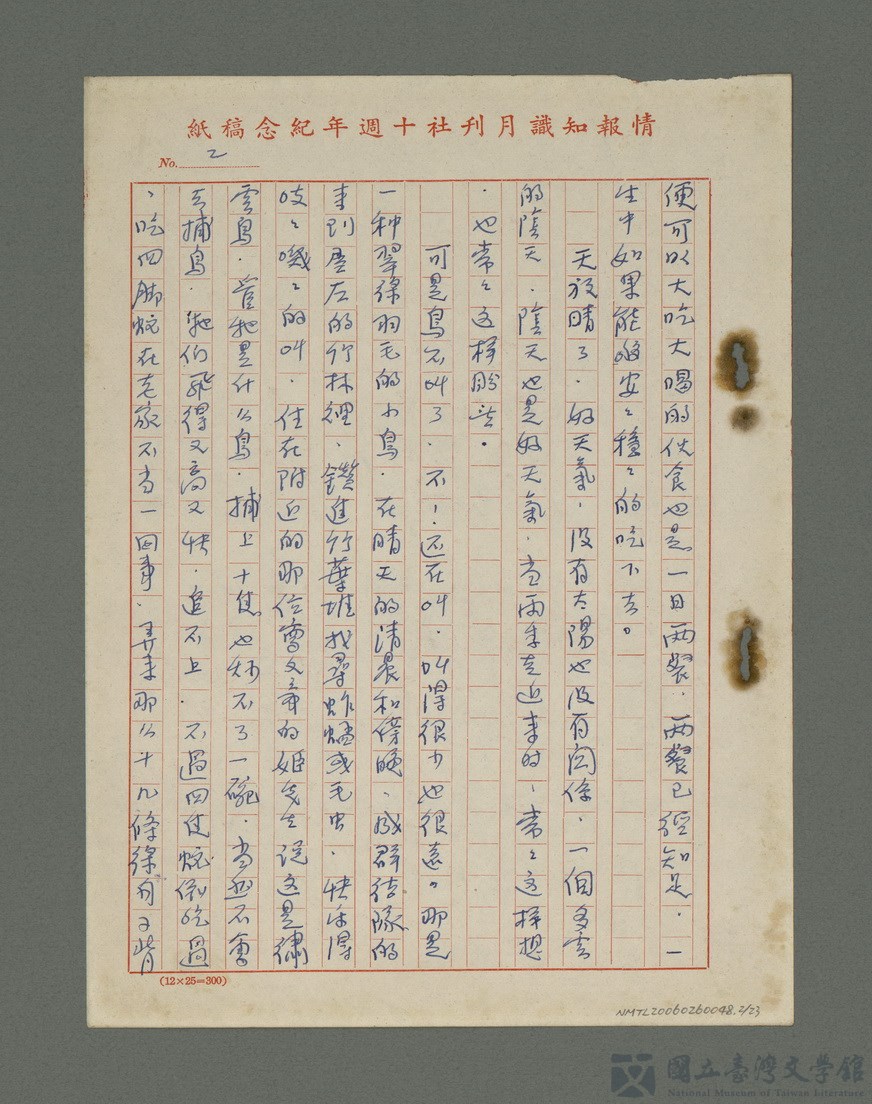 情報知識月刊社十週年紀念稿紙
No. 2
便可以大吃大喝的伙食也是一日两餐．两餐已經知足．一
生中如果能够安々穩々的吃下去。
天放晴了．好天氣，没有太陽也没有関係．一個多雲
的陰天．陰天也是好天氣．当雨季走近来时，常々这样想
．也常々这样盼望。
可是鳥不叫了．不！还在叫．叫得很少也很遠。那是
一种翠绿羽毛的小鳥．在晴天的清晨和傍晚、成群结隊的
来到屋左的竹林裡．鑽進竹葉堆找尋蚱蜢或毛虫．快乐得
吱々嘰々的叫．住在附近的那位會文章的姬先生說这是繡
雲鳥．管牠是什么鳥．捕上十隻也炒不了一碗．当然不會
去捕鳥．牠们飛得又高又快．追不上．不過四隻蛇倒吃過
、吃四脚蛇在老家不当一囬事．弄来那么十九條绿肉子背
(12×25=300)
NMTL20060260048.2/23
國立臺灣文學館
National Museum of Taiwan Literature